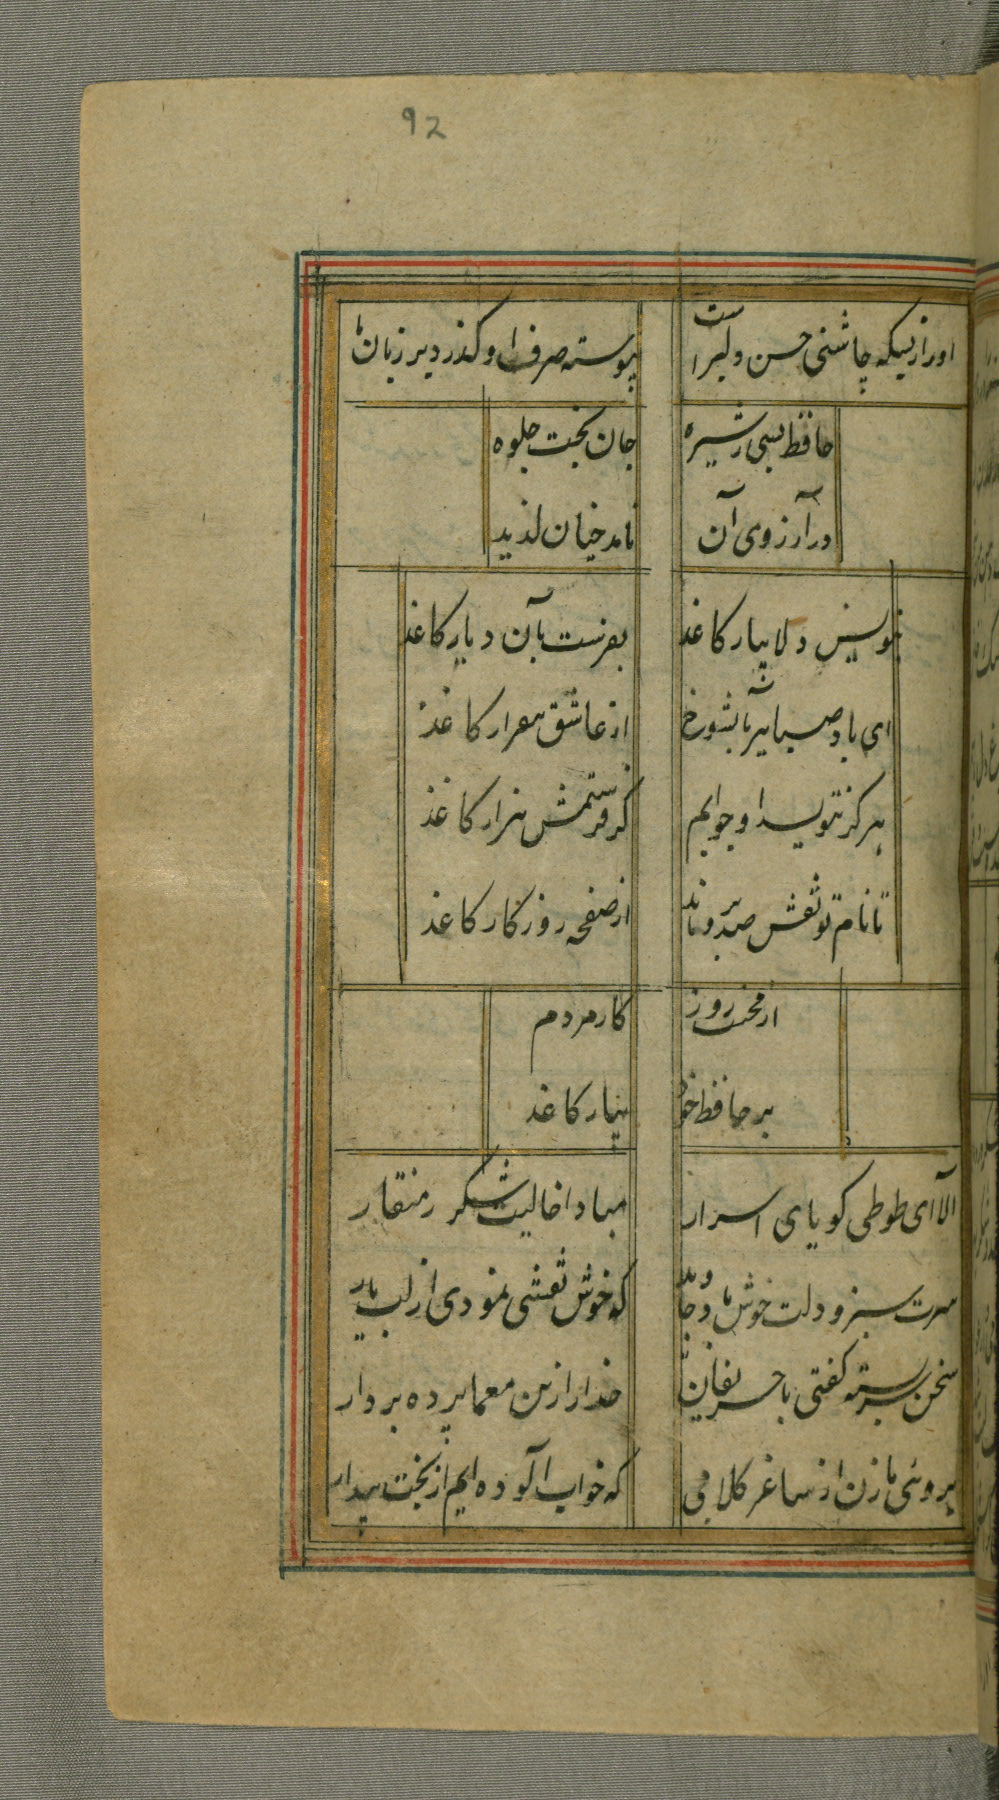 92
او را ز بسکه چاشنی حسن دلبر است
پیوسته صرف او گذرد بر زبان
حافظ بسی ز شیره
جان نجت جلوه
در آرزوی آن
نامد چنان لذید
بنویس دلا بیار کاغذ
بفرست بآن دیار کاغذ
ای باد صبا
از عاشق بیقرار کاغذ
هرگز ننویسد او جوابم
گر فرستمش هزار کاغذ
تا نام تو نقش
از صفحه روزگار کاغذ
از محنت روز
کار مردم
بر حافظ خود
بیار کاغذ
الا ای طوطی کویای اسرار
مبادا خالیت شکر ز منقار
سرت سبز و دلت خوش باد جاوید
که خوش نقشی نمودی از لب یار
سخن سربسته کفتی با حریفان
خدا را زین معما پرده بردار
بروئی ما زن از ساغر کلابی
که خواب آلوده ایم از بخت بیدار